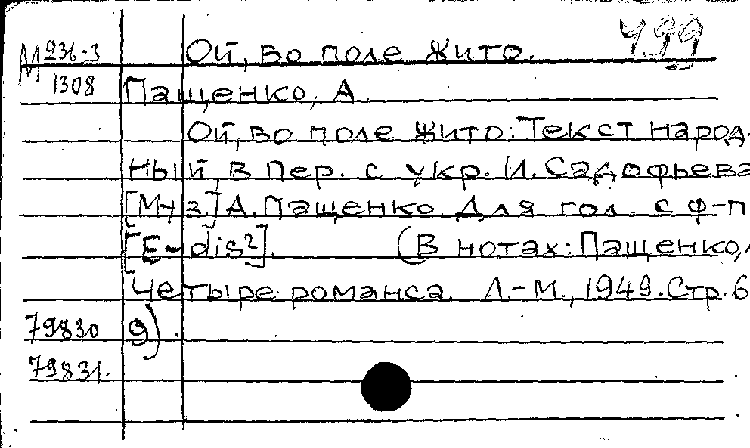 М 936-3 Ой, во поле жито. 499
1308 Пащенко, А.
Ой, во поле жито: Текст народ-
ный, в пер. с укр. И. Садофьева
[Муз.] А. Пащенко Для гол. с ф-п
[E-dis²]. (В нотах: Пащенко,
Четыре романса. Л.-М., 1949. Стр. 6
79830 9).
79831.